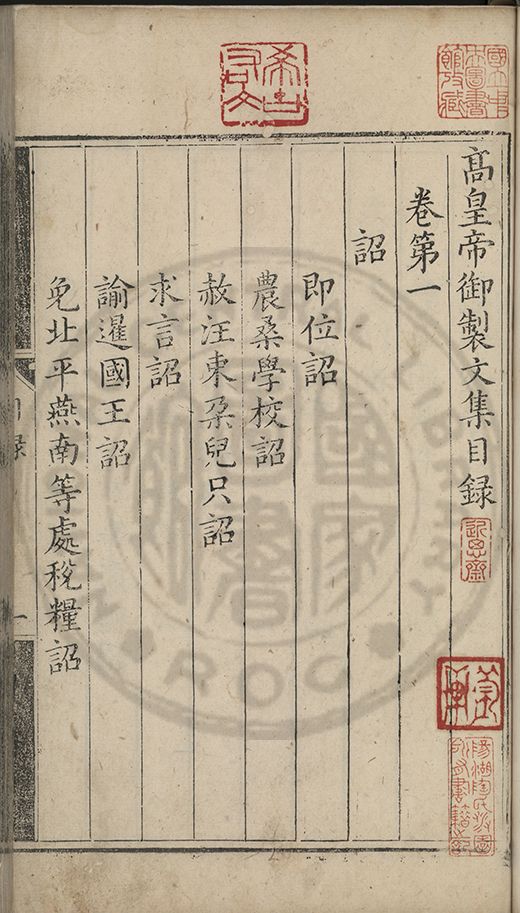 高皇帝御製文集目録
卷第一
詔
即位詔
農桑學校詔
赦汪東朶兒只詔
求言詔
諭暹國王詔
免北平燕南等處稅糧詔
目録
一